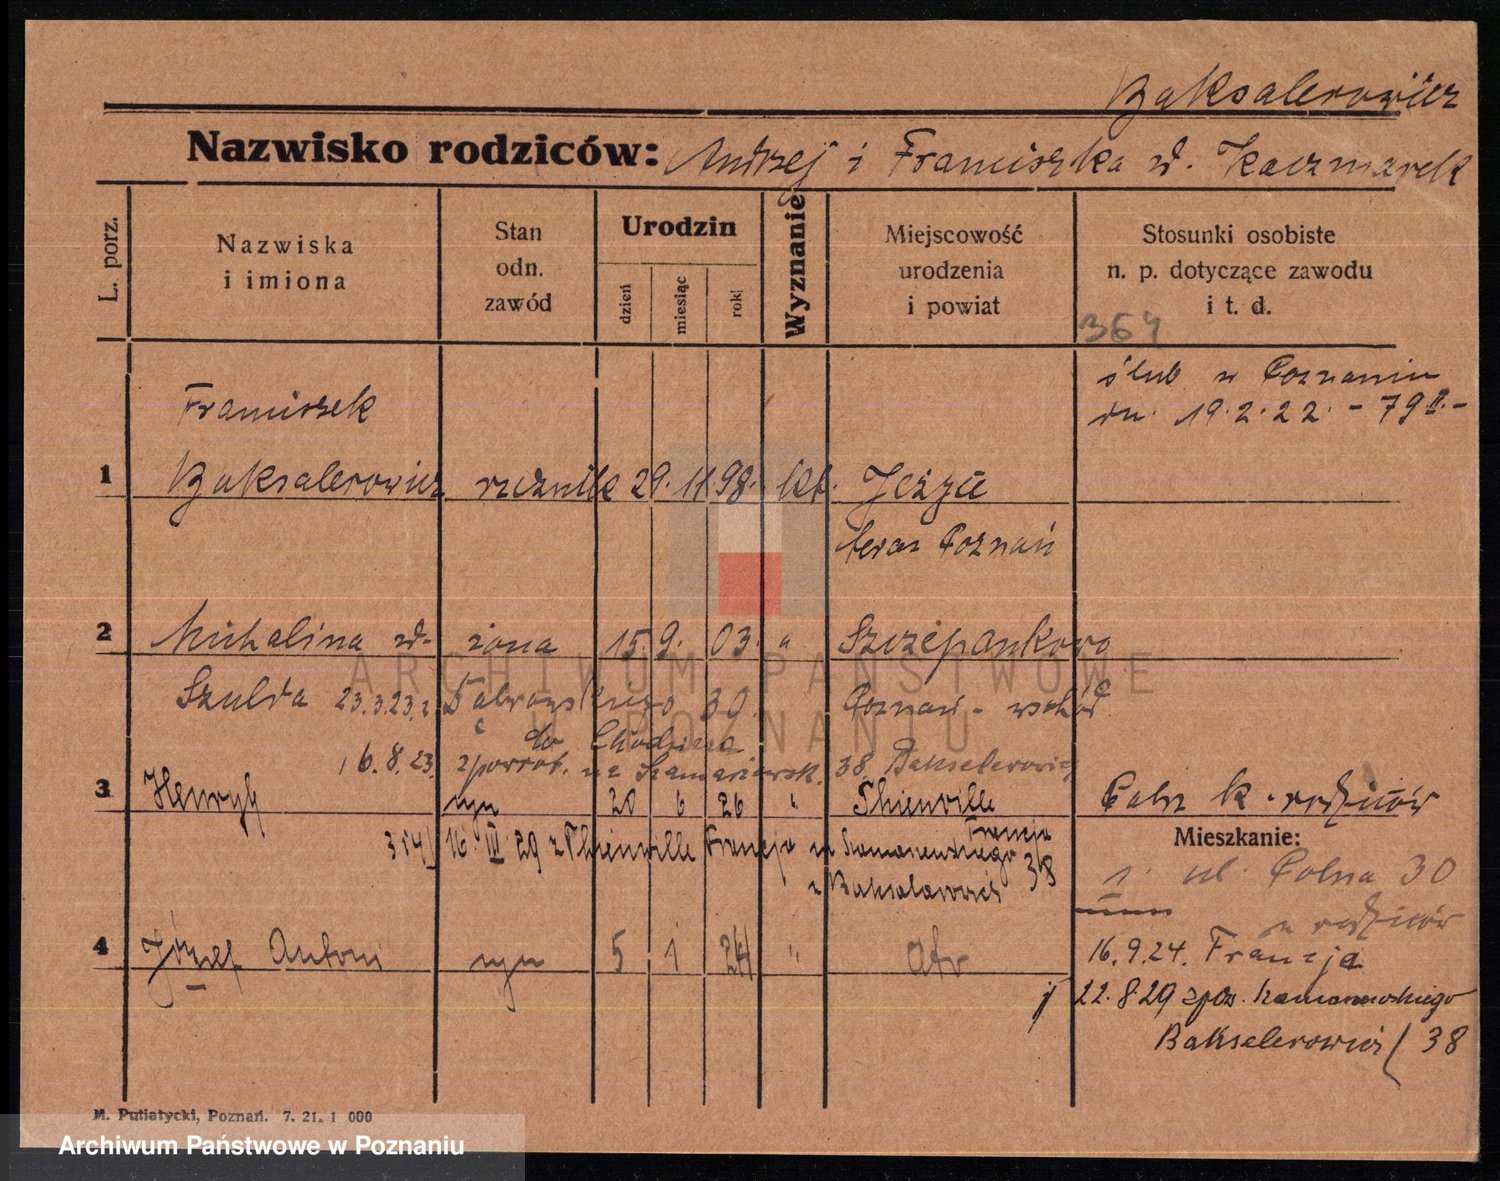 Baksalerowicz
Nazwisko rodziców: Andrzej i Franciszka d. Kaczmarek
L. porz.
Nazwiska
i imiona
Stan
odn.
zawód
Urodzin
dzień
miesiąc
rok
Wyznanie
Miejscowość
urodzenia
i powiat
Stosunki osobiste
n. p. dotyczące zawodu
i t. d.
364
ślub w Poznaniu
dn. 19.2.22. - 79 II. -
Franciszek
1 Baksalerowicz rzeźnik 29. 11. 98. kt. Jeżyce
teraz Poznań
2 Michalina d. żona 15. 9. 03. " Szczepankowo
Szulda 23.3.23. z Dąbrowskiego 30. Poznań - wschód
16.8.23. z powrot. do Chodzieża
na Szamarzewsk. 38 Bakselerowicz
3 Henryk syn 20 6 26 " Thienville
Francja
Pobr k. rodziców
354/ 16. III. 29 z Thienville Francja ul Szamarzewskiego 38
z Baksalerowicz
Mieszkanie:
1. ul. Polna 30
u rodziców
4 Józef Antoni syn 5 1 24 "
16.9.24. Francja
22.8.29 Szamarzewskiego
Bakselerowicz / 38
M. Putiatycki, Poznań. 7. 21. 1 000
ARCHIWUM PAŃSTWOWE
W POZNANIU
Archiwum Państwowe w Poznaniu